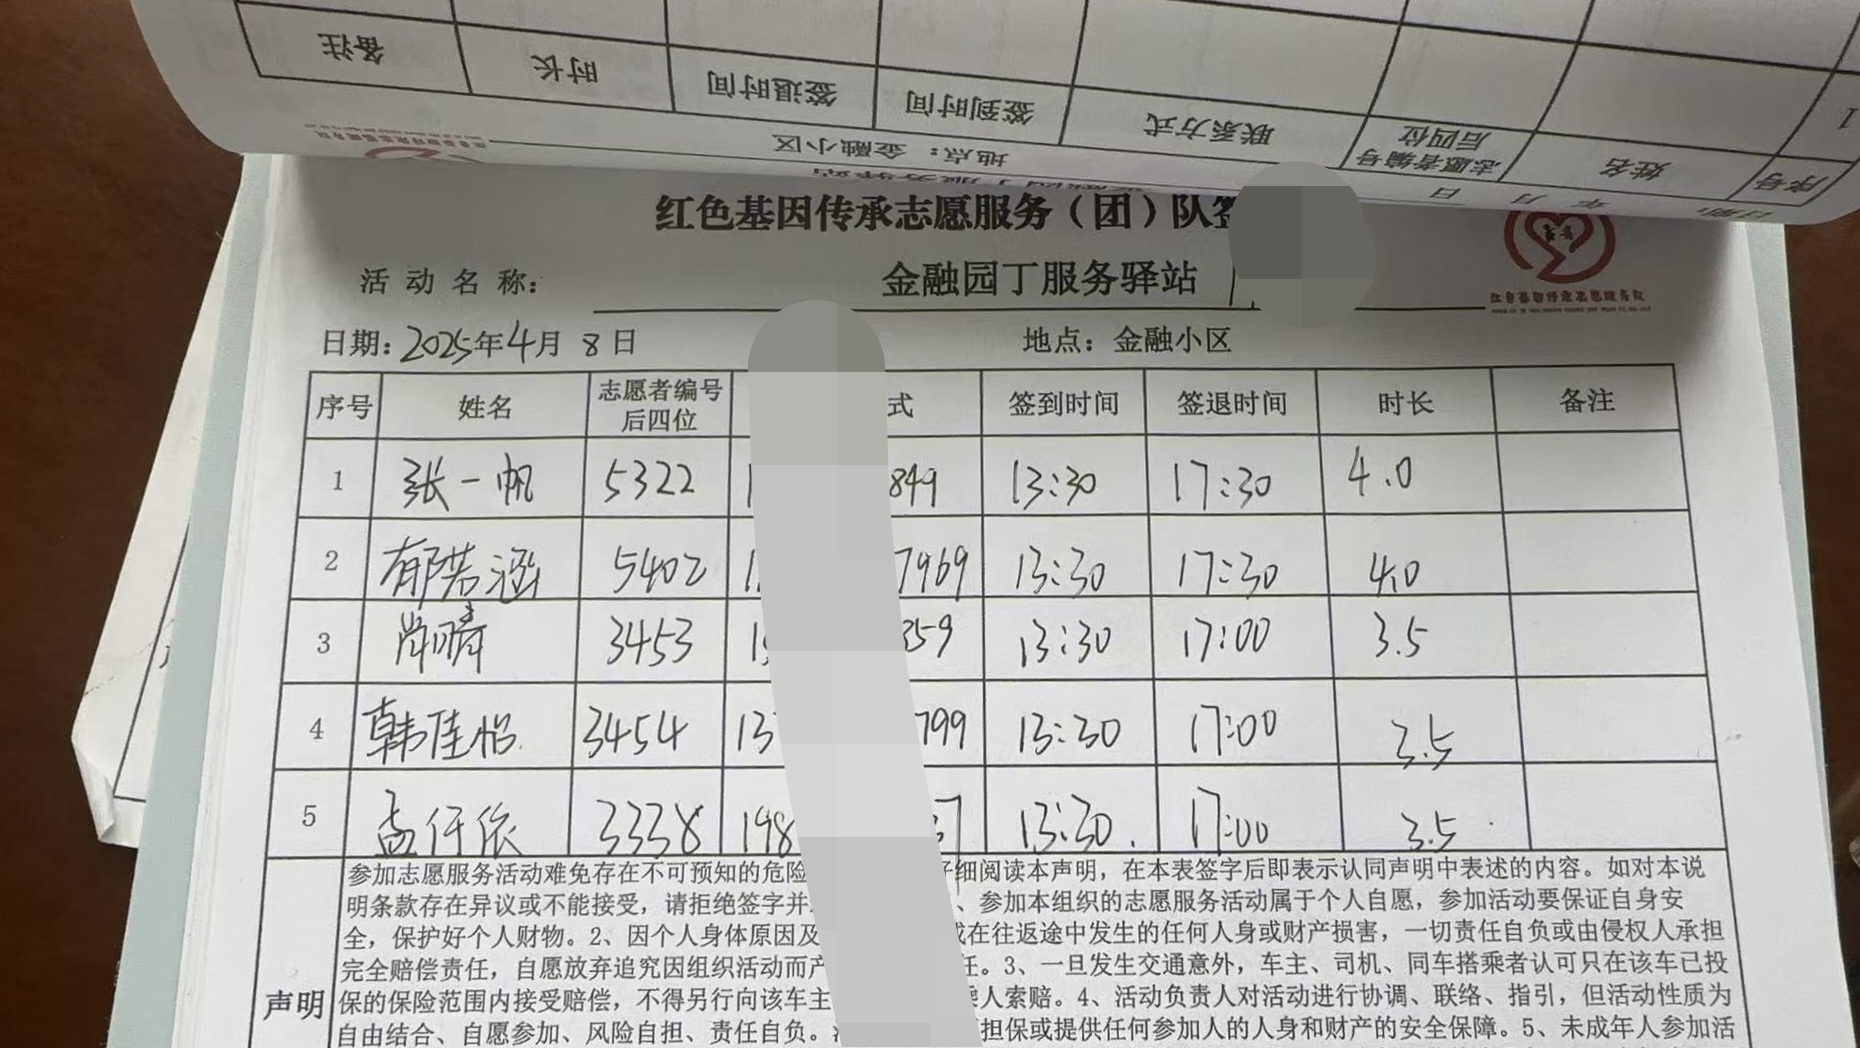 备注 时长 签退时间 签到时间 联系方式 志愿者编号后四位 姓名 序号
1
地点：金融小区
年 月 日
红色基因传承志愿服务（团）队签
活动名称： 金融园丁服务驿站
日期：2025年4月8日 地点：金融小区
序号 姓名 志愿者编号后四位 式 签到时间 签退时间 时长 备注
1 张一帆 5322 1 849 13:30 17:30 4.0
2 郁若涵 5402 1 7969 13:30 17:30 4.0
3 肖晴 3453 15 359 13:30 17:00 3.5
4 韩佳怡 3454 13 799 13:30 17:00 3.5
5 孟仟依 3338 198 7 13:30. 17:00 3.5
声明
参加志愿服务活动难免存在不可预知的危险 仔细阅读本声明，在本表签字后即表示认同声明中表述的内容。如对本说
明条款存在异议或不能接受，请拒绝签字并 、参加本组织的志愿服务活动属于个人自愿，参加活动要保证自身安
全，保护好个人财物。2、因个人身体原因及 或在往返途中发生的任何人身或财产损害，一切责任自负或由侵权人承担
完全赔偿责任，自愿放弃追究因组织活动而产 任。3、一旦发生交通意外，车主、司机、同车搭乘者认可只在该车已投
保的保险范围内接受赔偿，不得另行向该车主 乘人索赔。4、活动负责人对活动进行协调、联络、指引，但活动性质为
自由结合、自愿参加、风险自担、责任自负。 担保或提供任何参加人的人身和财产的安全保障。5、未成年人参加活